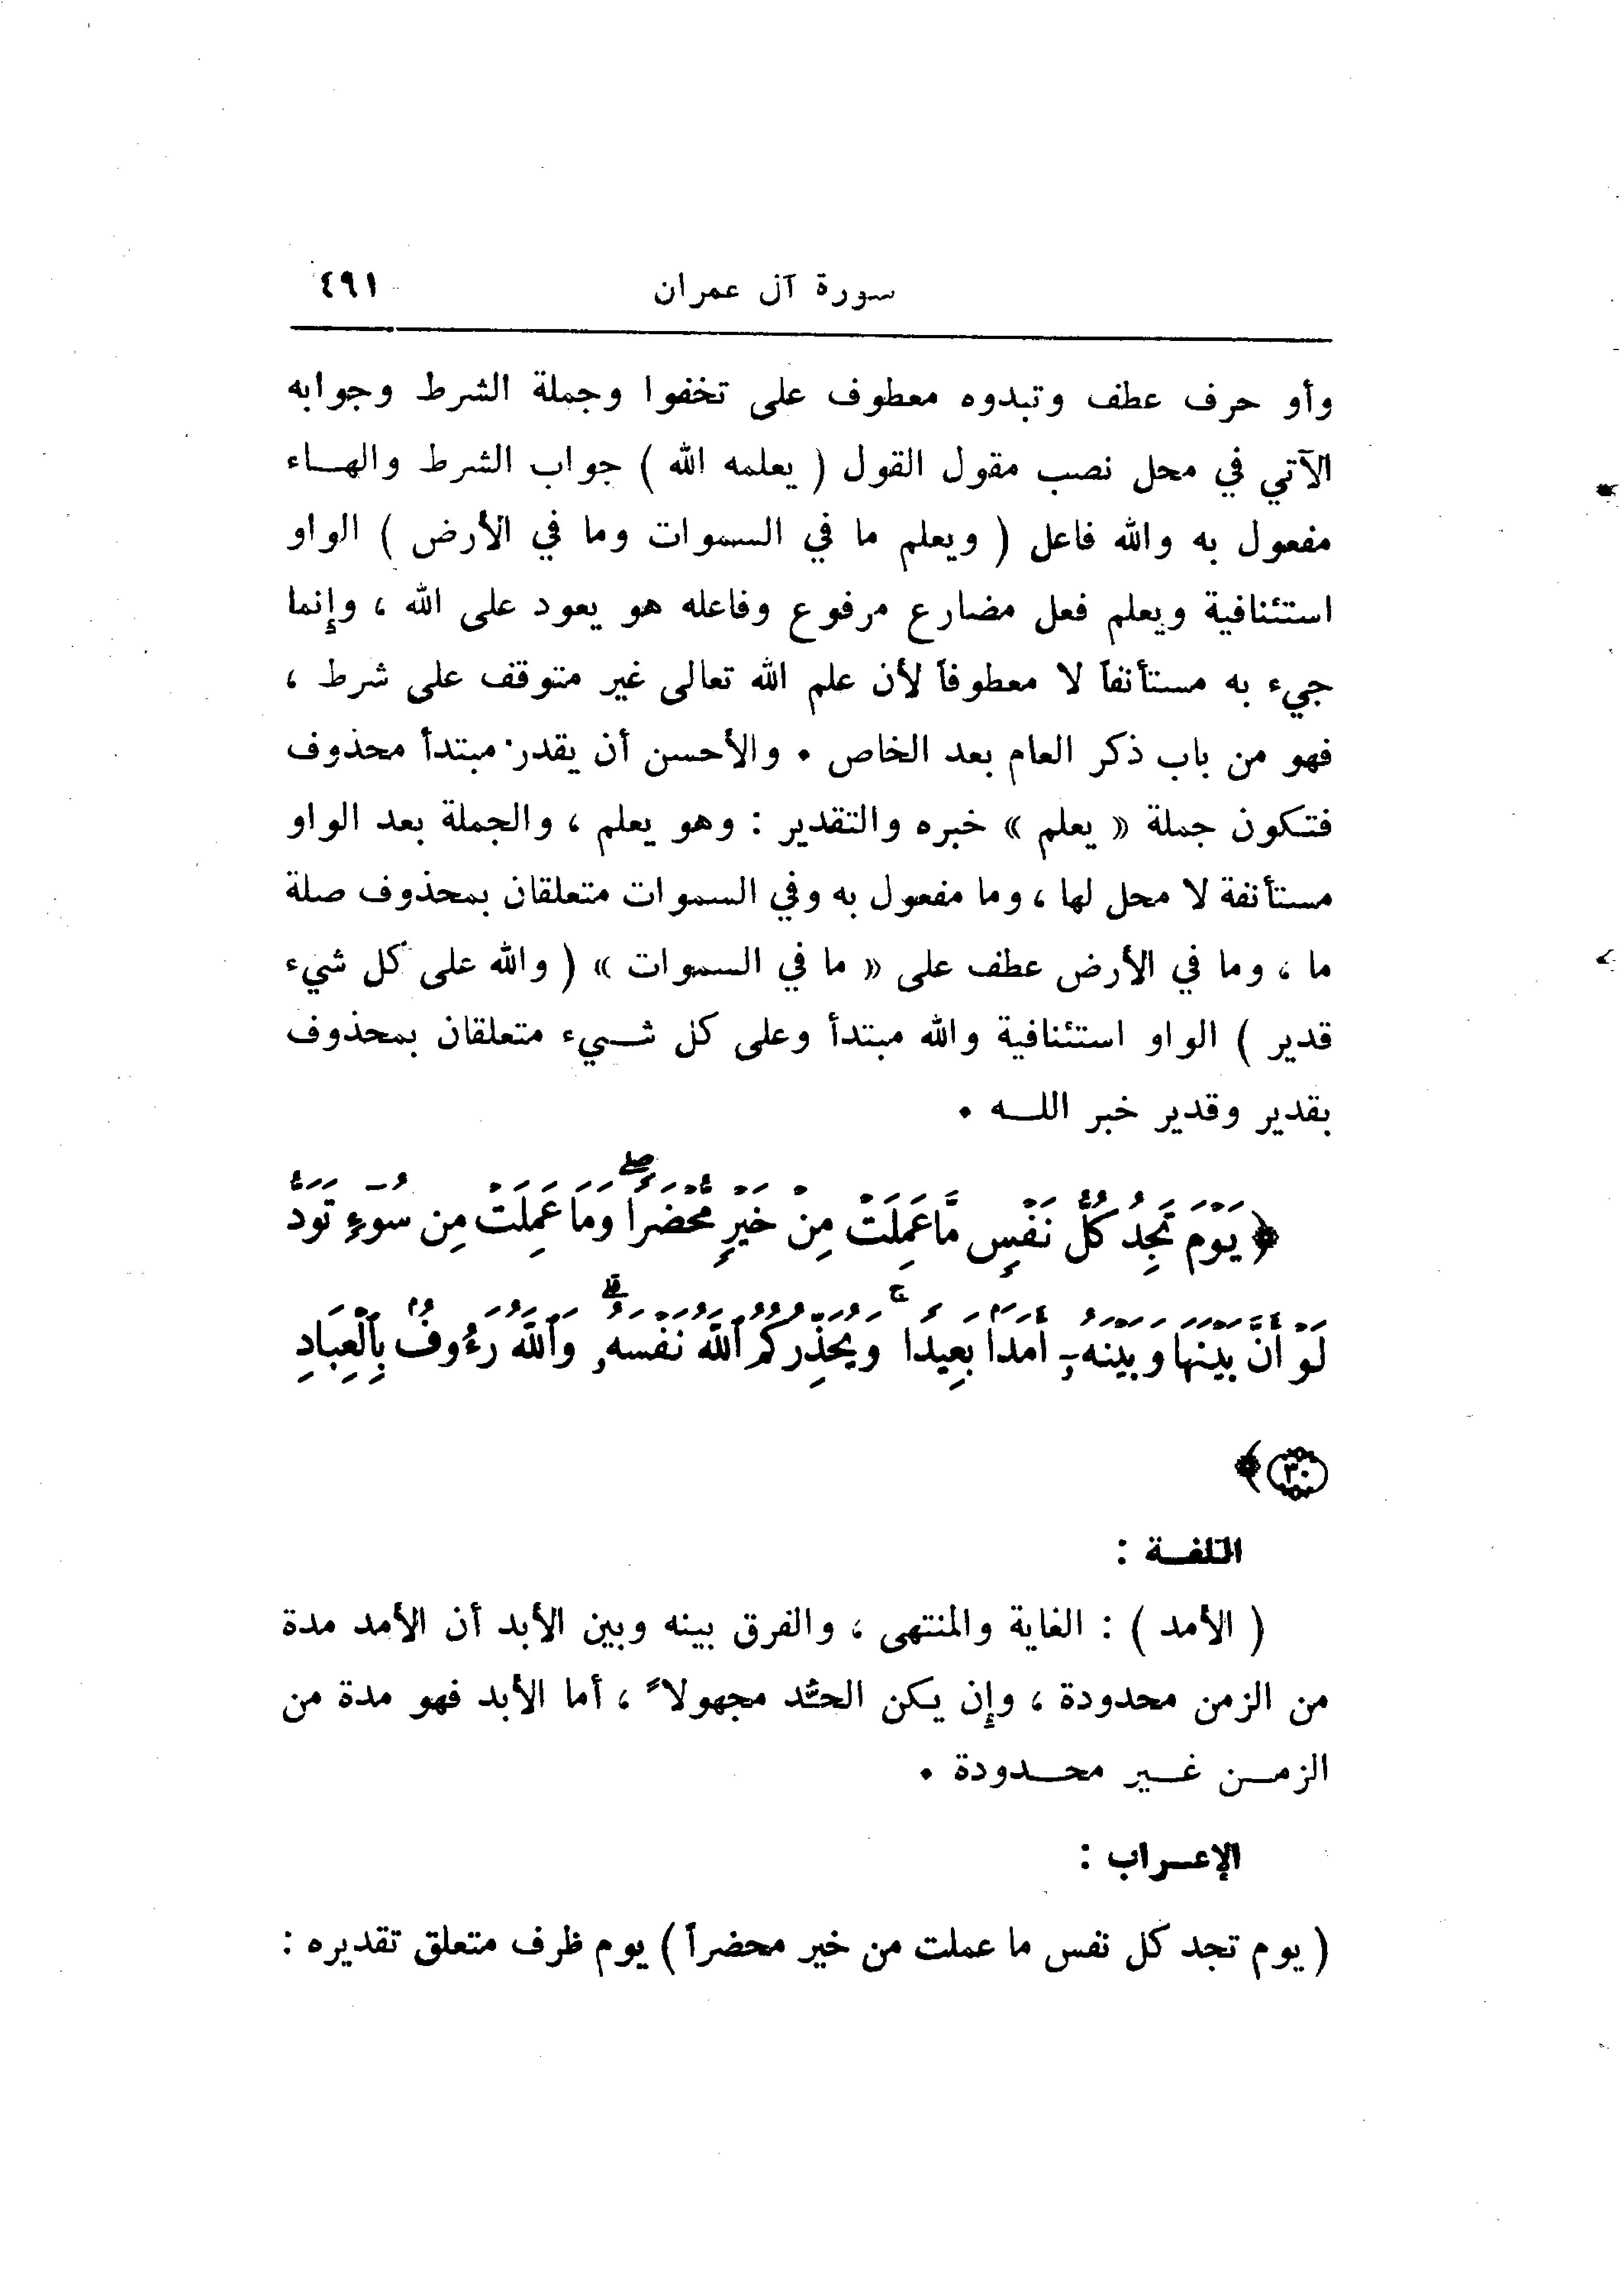 سورة آل عمران ٤٩١
وأو حرف عطف وتبدوه معطوف على تخفوا وجملة الشرط وجوابه
الآتي في محل نصب مقول القول ( يعلمه الله ) جواب الشرط والهـاء
مفعول به والله فاعل ( ويعلم ما في السموات وما في الأرض ) الواو
استئنافية ويعلم فعل مضارع مرفوع وفاعله هو يعود على الله ، وإنما
جيء به مستأنفاً لا معطوفاً لأن علم الله تعالى غير متوقف على شرط ،
فهو من باب ذكر العام بعد الخاص . والأحسن أن يقدر مبتدأ محذوف
فتكون جملة « يعلم » خبره والتقدير : وهو يعلم ، والجملة بعد الواو
مستأنفة لا محل لها ، وما مفعول به وفي السموات متعلقان بمحذوف صلة
ما ، وما في الأرض عطف على « ما في السموات » ( والله على كل شيء
قدير ) الواو استئنافية والله مبتدأ وعلى كل شـيء متعلقان بمحذوف
بقدير وقدير خبر اللـه .
﴿ يَوْمَ تَجِدُ كُلُّ نَفْسٍ مَّا عَمِلَتْ مِنْ خَيْرٍ مُّحْضَرًا ۖ وَمَا عَمِلَتْ مِن سُوٓءٍ تَوَدُّ
لَوْ أَنَّ بَيْنَهَا وَبَيْنَهُۥٓ أَمَدًۢا بَعِيدًا ۚ وَيُحَذِّرُكُمُ ٱللَّهُ نَفْسَهُۥ ۗ وَٱللَّهُ رَءُوفٌۢ بِٱلْعِبَادِ
٣٠ ﴾
اللغـة :
( الأمد ) : الغاية والمنتهى ، والفرق بينه وبين الأبد أن الأمد مدة
من الزمن محدودة ، وإن يكن الحدّ مجهولاً ، أما الأبد فهو مدة من
الزمـن غـير محـدودة .
الإعـراب :
( يوم تجد كل نفس ما عملت من خير محضراً ) يوم ظرف متعلق تقديره :